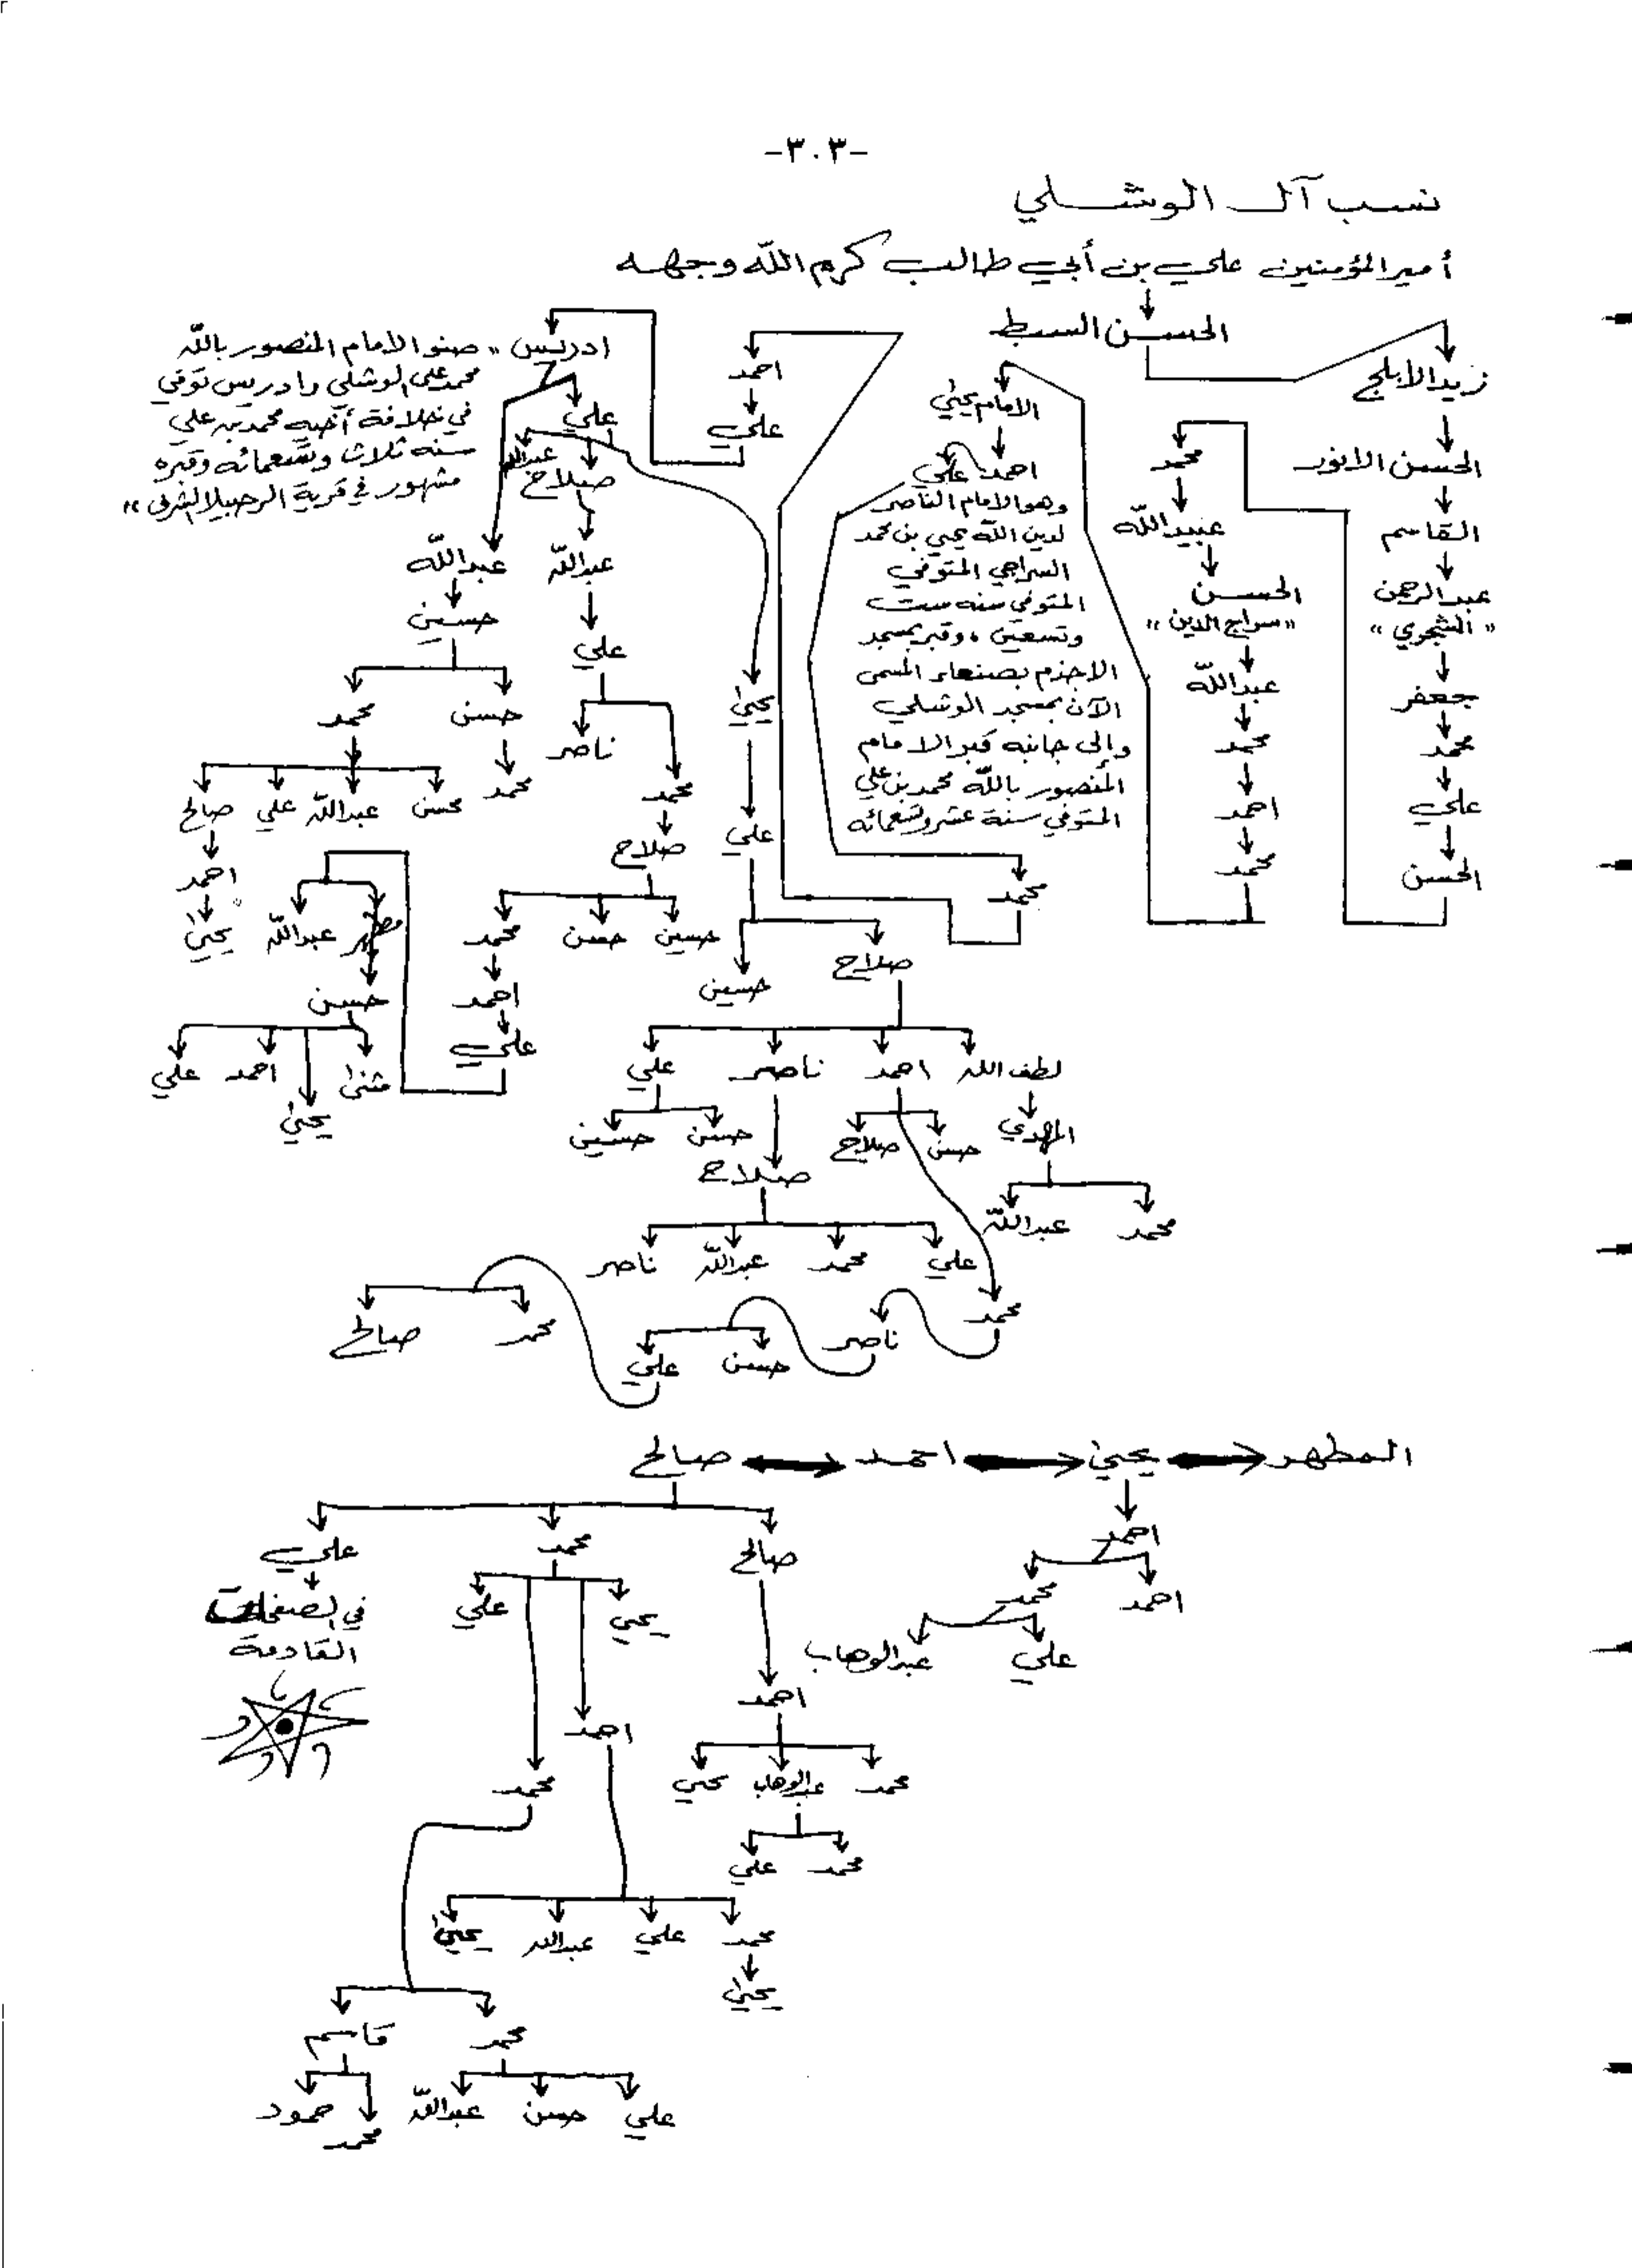 -٣٠٣-
نسب آل الوشلي
أمير المؤمنين علي بن أبي طالب كرم الله وجهه
الحسن السبط
زيد الأبلج
الحسن الانور
القاسم
عبدالرحمن
"الشجري"
جعفر
محمد
علي
الحسن
محمد
عبيدالله
الحسن
"سراج الدين"
عبدالله
محمد
احمد
محمد
الامام يحيى
احمد علي
وهو الامام الناصر
لدين الله يحيى بن محمد
السراجي المتوفي
المتوفي سنه ست
وتسعين، وقبر بمسجد
الاجذم بصنعاء المسمى
الآن بمسجد الوشلي
وإلى جانبه قبر الامام
المنصور بالله محمد بن علي
المتوفي سنة عشر وتسعمائه
محمد
احمد
علي
ادريس "صنو الامام المنصور بالله
محمد علي الوشلي وادريس توفي
في خلافة أخيه محمد بن علي
سنه ثلاث وتسعمائه وقبره
مشهور في قرية الشرفي"
علي
عبدالله
صلاح
يحيى
عبدالله
عبدالله
حسين
علي
حسن
محمد
ناصر
محمد
محمد
محسن
عبدالله
علي
صالح
احمد
يحيى
صلاح
علي
حسين
حسن
محمد
احمد
علي
مطهر
عبدالله
حسن
مثنى
يحيى
احمد
علي
صلاح
حسين
لطف الله
احمد
ناصر
علي
المهدي
حسن
صلاح
حسن
حسين
صلاح
محمد
عبدالله
علي
محمد
عبدالله
ناصر
محمد
ناصر
حسن
علي
محمد
صالح
المطهر يحيى احمد صالح
احمد
احمد
محمد
علي
عبدالوهاب
صالح
محمد
علي
في الصفحات
القادمة
يحيى
علي
احمد
احمد
محمد
محمد
عبدالوهاب
يحيى
محمد
علي
محمد
علي
عبدالله
يحيى
يحيى
محمد
قاسم
علي
حسن
عبدالله
محمد
حمود